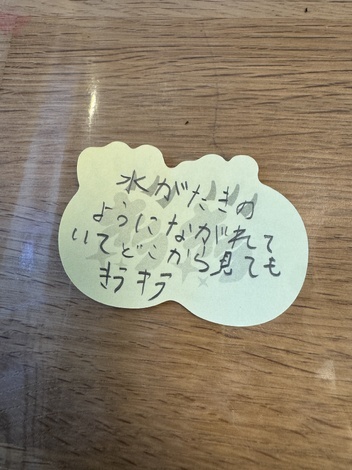 水がたきの
ようにながれて
いてどこから見ても
キラキラ